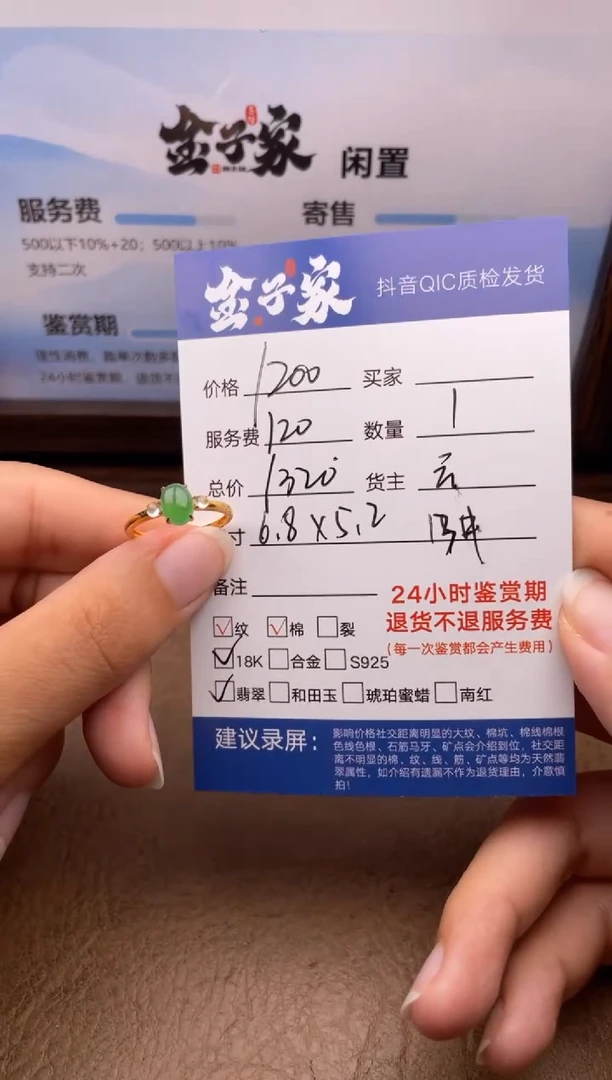 金子家 闲置
服务费
寄售
500以下10%+20；500以上10%
支持二次
鉴赏期
金子家 抖音QIC质检发货
价格 1200 买家
服务费 120 数量 1
总价 1320 货主 云
寸 6.8×5.2
备注
24小时鉴赏期
退货不退服务费
（每一次鉴赏都会产生费用）
纹 棉 裂
18K 合金 S925
翡翠 和田玉 琥珀蜜蜡 南红
建议录屏：
影响价格社交距离明显的大纹、棉坑、棉线棉根
色线色根、石筋马牙、矿点会介绍到位，社交距
离不明显的棉、纹、线、筋、矿点等均为天然翡
翠属性，如介绍有遗漏不作为退货理由，介意慎
拍！